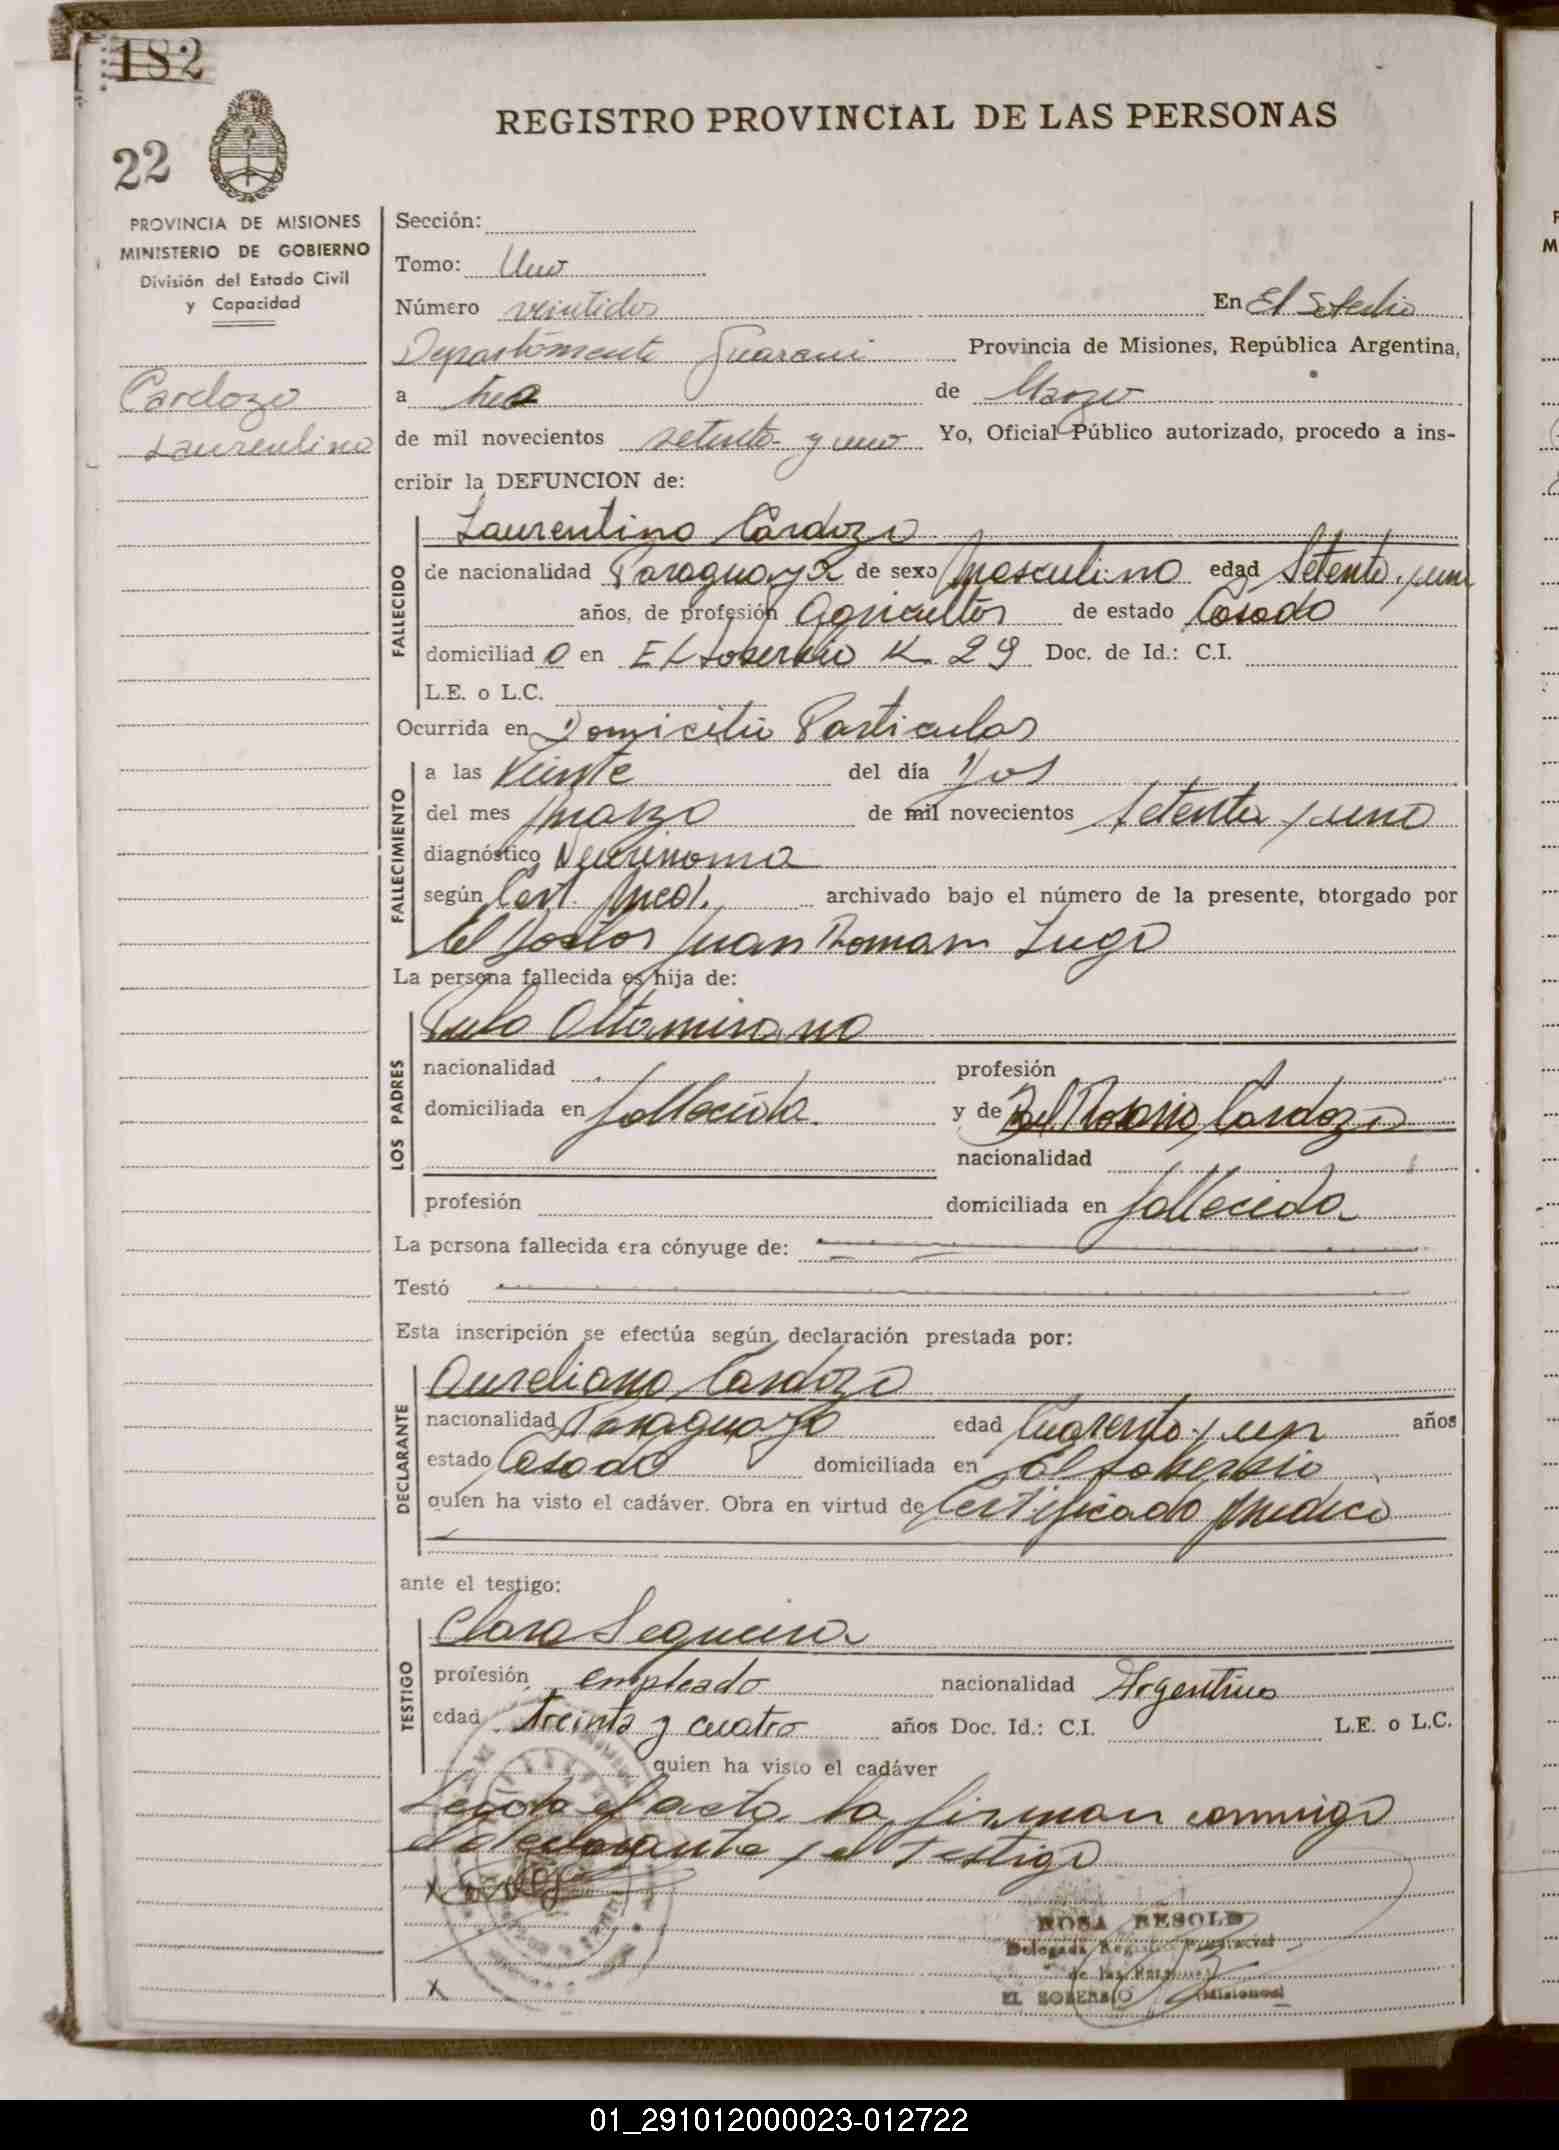 182
22
REGISTRO PROVINCIAL DE LAS PERSONAS
PROVINCIA DE MISIONES
MINISTERIO DE GOBIERNO
División del Estado Civil
y Capacidad
Cardozo
Laurentino
Sección:
Tomo: Uno
Número veintidos En El Soberbio
Departamento Guarani Provincia de Misiones, República Argentina,
a tres de Marzo
de mil novecientos setenta y uno Yo, Oficial Público autorizado, procedo a ins-
cribir la DEFUNCION de:
FALLECIDO
Laurentino Cardozo
de nacionalidad Paraguaya de sexo Masculino edad Setenta y un
años, de profesión Agricultor de estado Casado
domiciliad o en El Soberbio K 29 Doc. de Id.: C.I.
L.E. o L.C.
Ocurrida en Domicilio Particular
FALLECIMIENTO
a las Veinte del día Dos
del mes Marzo de mil novecientos Setenta y uno
diagnóstico Neurinoma
según Cert. Med. archivado bajo el número de la presente, otorgado por
El Doctor Juan Roman Lugo
La persona fallecida es hija de:
LOS PADRES
Altamirano
nacionalidad profesión
domiciliada en fallecida. y de Del Rosario Cardozo
nacionalidad
profesión domiciliada en fallecida
La persona fallecida era cónyuge de:
Testó
Esta inscripción se efectúa según declaración prestada por:
DECLARANTE
Aureliano Cardozo
nacionalidad Paraguayo edad Cuarenta y un años
estado Casado domiciliada en El Soberbio
quien ha visto el cadáver. Obra en virtud de Certificado Medico
ante el testigo:
TESTIGO
Clara Sequeira
profesión empleado nacionalidad Argentino
edad treinta y cuatro años Doc. Id.: C.I. L.E. o L.C.
quien ha visto el cadáver
Leida el acta la firman conmigo
el declarante y el Testigo
X
ROSA BESOLD
Delegada Registro Provincial
de las Personas
EL SOBERBIO (Misiones)
X
01_291012000023-012722